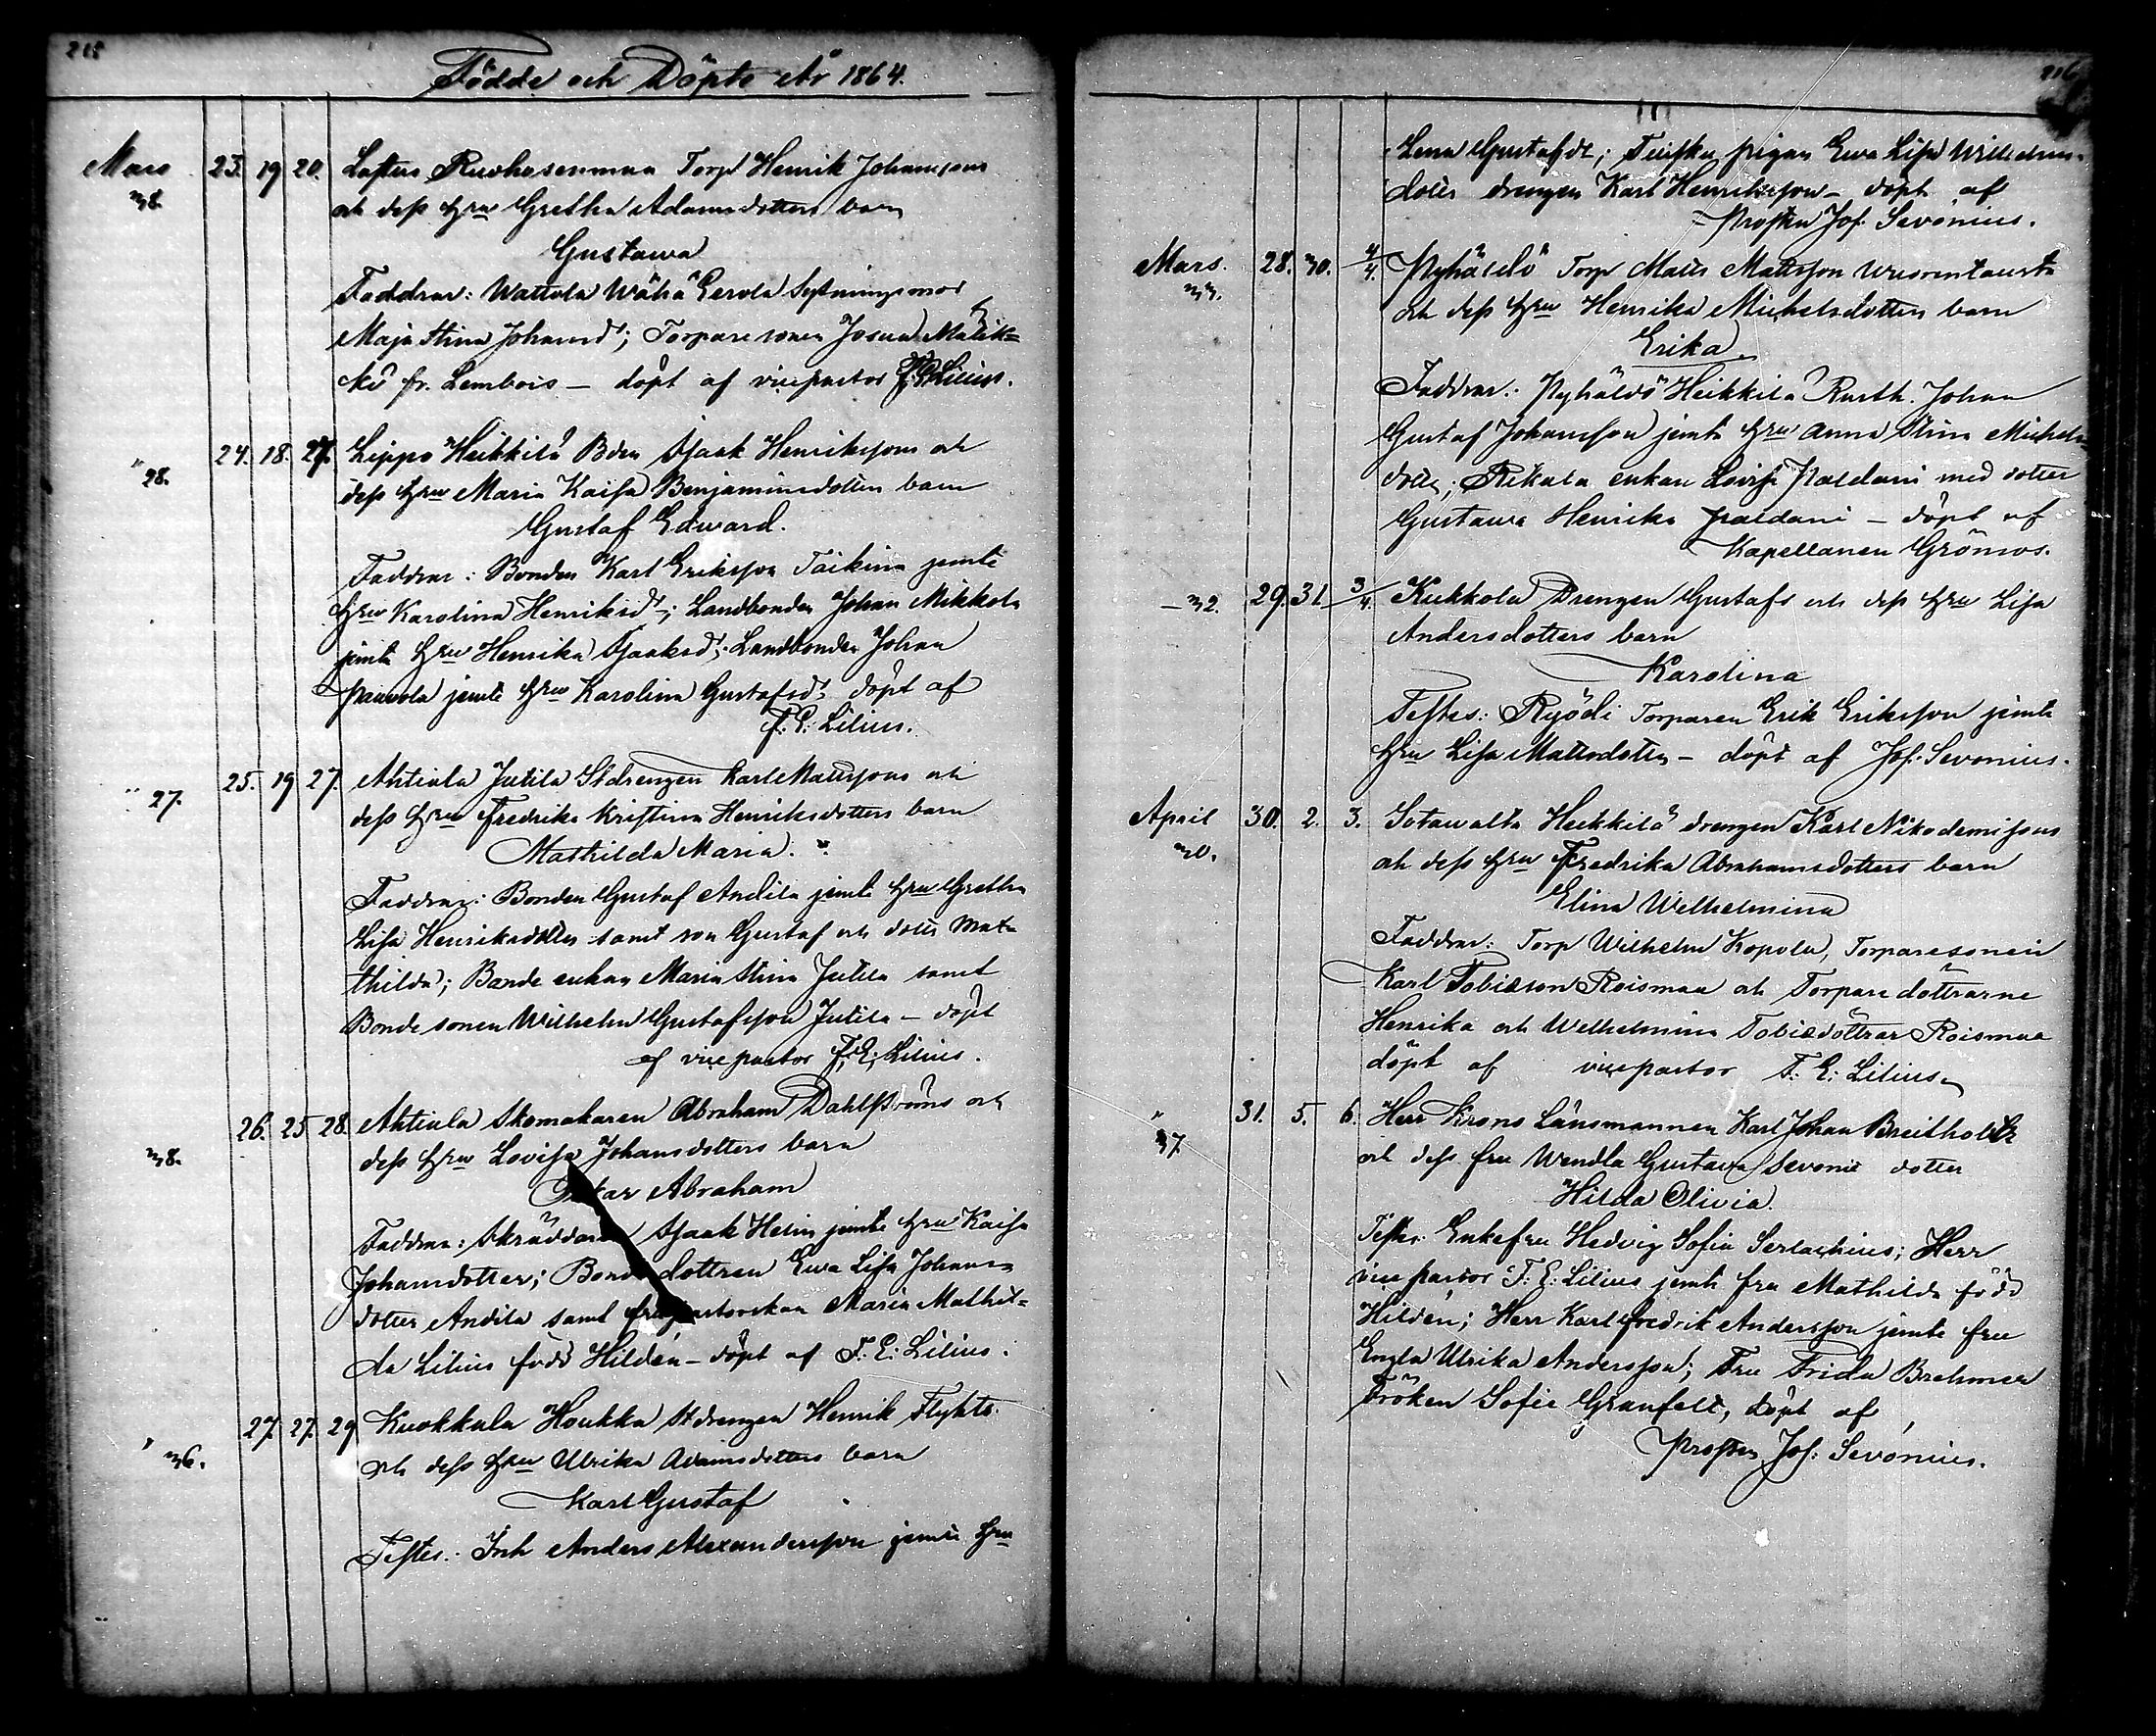 215
Födde och Döpte År 1864.
Mars 23. 19 20. Torp Henrik Johanssons
m 8. och dess hru Gretha Adamsdotters barn
Gustawa
Faddrar: Wattola Wähä Eerola Sytningsmor
Maja Stina Johansd; Torparesonen Josua
fr. Lembois – döpt af vicepastor F. E. Lilius.
24. 18. 27. Lippo Heikkilä Bden Isaak Henrikssons och
" 28. dess hru Maria Kaisa Benjaminsdotters barn
Gustaf Edward.
Faddrar: Bonden Karl Eriksson jemte
hru Karolina Henriksdr; Landbonden Johan Mikkola
jemte hru Henrika Isaaksdr; Landbonden Johan
Paavola jemte hru Karolina Gustafsdr döpt af
F. E. Lilius.
25. 19 27. Ahtiala Jutila Stdrengen Karl Mattssons och
" 27. dess hru Fredrika Kristina Henriksdotters barn
Mathilda Maria.
Faddrar: Bonden Gustaf Andila jemte hru Gretha
Lisa Henriksdotter samt son Gustaf och dotter Mat-
thilda; Bonde enkan Maria Stina Jutila samt
Bonde sonen Wilhelm Gustafsson Jutila – döpt
af vicepastor F. E. Lilius.
26. 25 28. Ahtiala Skomakaren Abraham Dahlströms och
m 8. dess hru Lovisa Johansdotters barn
Abraham
Faddrar: Isaak Helin jemte hru Kaisa
Johansdotter; dottren Ewa Lisa Johans-
dotter Andila samt Maria Mathil-
da Lilius född Hildén – döpt af F. E. Lilius.
27. 27. 29 Kuokkala Houkka Stdrengen Henrik Flykts
" m 6. och dess hru Ulrika Adamsdotters barn
Karl Gustaf
Testes: Inh Anders Alexandersson jemte hru
216
Lena Gustafdr; pigan Ewa Lisa Wilhelms-
dotter drengen Karl Henriksson – döpt af
Prosten Jos. Sevónius.
Mars. 28. 30. 4/4. Pyhäldö Torp Matts Mattsson
m 33. och dess hru Henrika Michelsdotters barn
Erika
Faddrar: Pyhäldö Heikkilä Rusth. Johan
Gustaf Johansson jemte hru Anna Stina Michels-
dotter; Rekola enkan Lovisa Paldani med dotter
Gustawa Henrika Paldani – döpt af
Kapellanen Grönros.
– 32. 29. 31. 3/4. Kukkola Drengen Gustafs och dess hru Lisa
Andersdotters barn
Karolina
Testes: Ryödi Torparen Erik Eriksson jemte
hru Lisa Mattsdotter – döpt af Jos. Sevonius.
April 30. 2. 3. Sotawalta Heikkilä drengen Karl Nikodemissons
30. och dess hru Fredrika Abrahamsdotters barn
Elina Wilhelmina
Faddrar: Torp Wilhelm Kopola, Torparesonen
Karl Tobiasson Roismaa och Torpare döttrarne
Henrika och Wilhelmina Tobiædöttrar Roismaa
döpt af vicepastor F. E. Lilius
" 31. 5. 6. Herr Krono Länsmannen Karl Johan Breitholtz
37. och dess fru Wendla Gustava Sevoni dotter
Hilda Olivia.
Testes: Enkefru Hedvig Sofia Serlachius; Herr
vice pastor F. E. Lilius jemte fru Mathilda född
Hildén; Herr Karl Fredrik Andersson jemte fru
Engla Ulrika Andersson; Fru Frida Brehmer
Fröken Sofie Granfelt, döpt af
Prosten Jos. Sevónius.